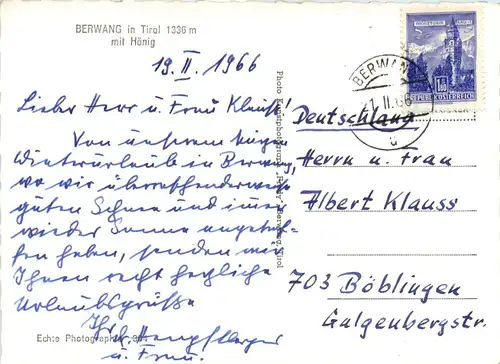 BERWANG in Tirol 1336 m
mit Hönig
19. II. 1966
Lieber Herr u. Frau Klauss!
Von unserem
Winterurlaub in Berwang,
wo wir überraschenderweise
guten Schnee und immer
wieder Sonne angetrof-
fen haben, senden wir
Ihnen recht herzliche
Urlaubsgrüße
Ihr
u. Frau.
Echte Photographie
Photo
Berwang, Tirol
REPUBLIK ÖSTERREICH
BERWANG
21. II. 66
Deutschland
Herrn u. Frau
Albert Klauss
703 Böblingen
Galgenbergstr.